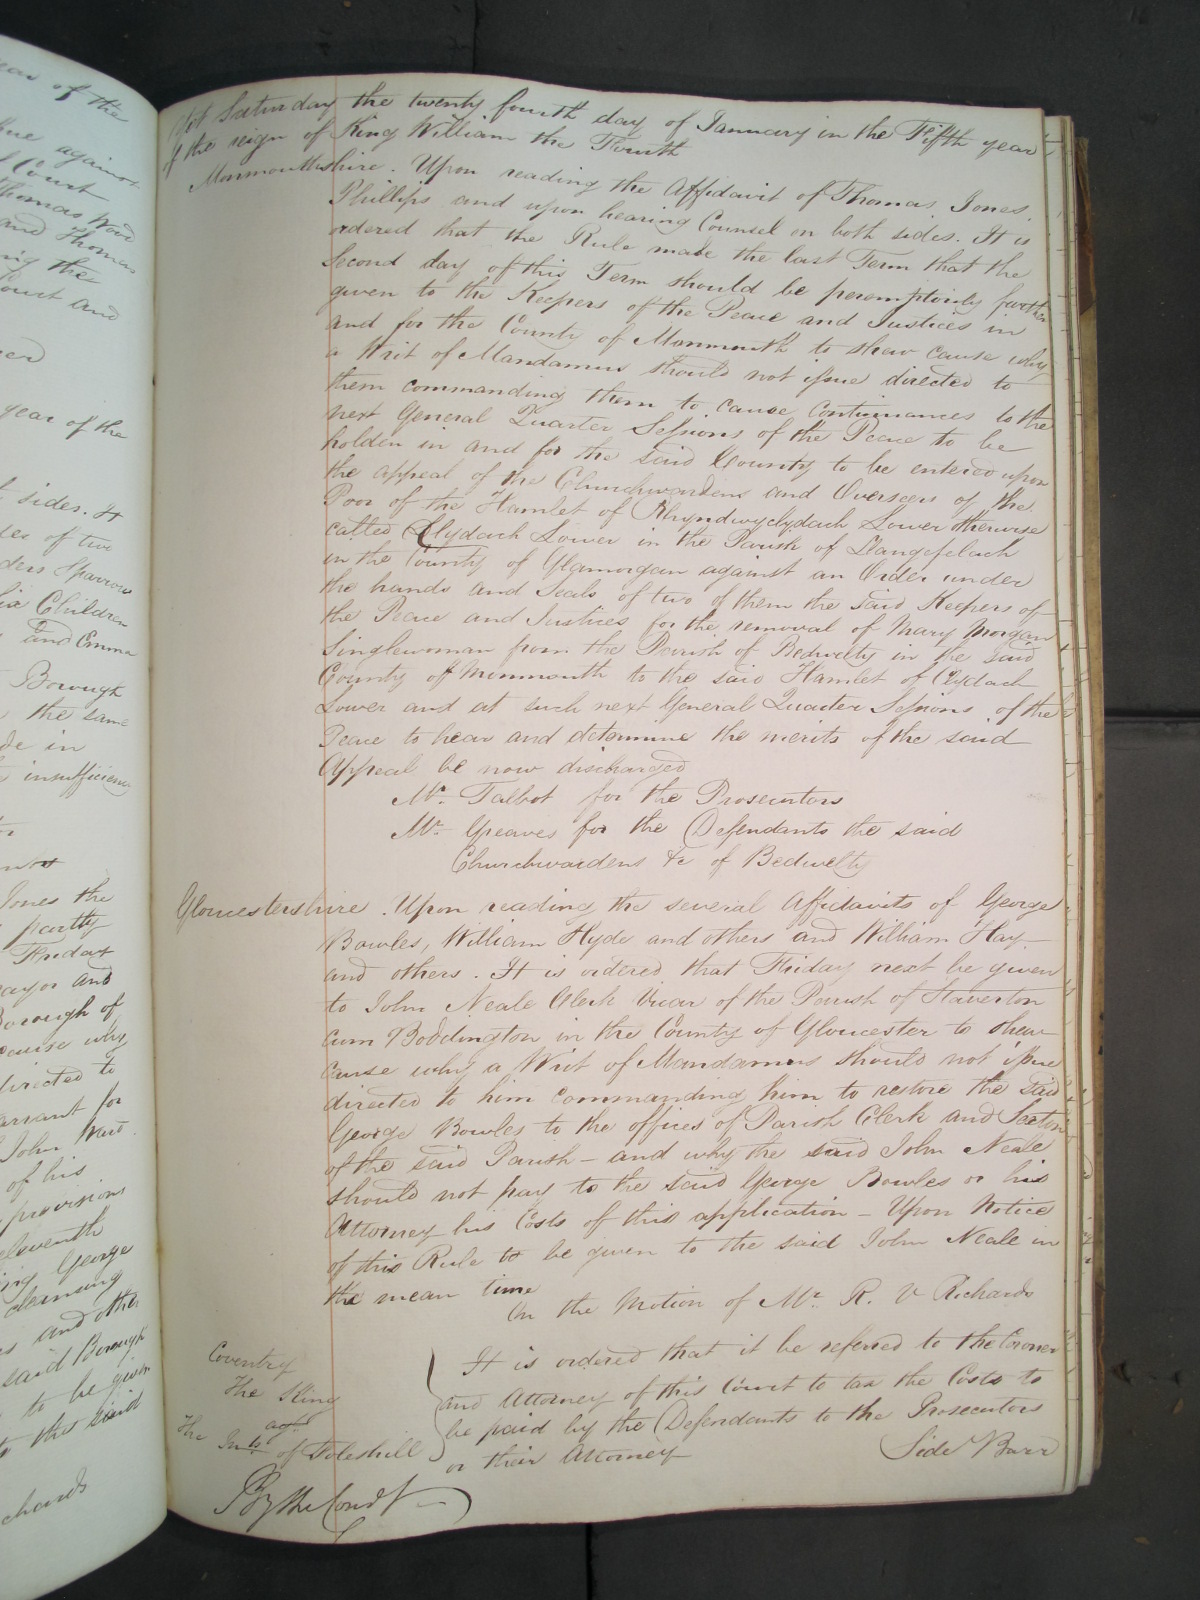 ear of the
against
Court
Thomas Ward
and Thomas
ing the
Court and
year of the
sides. It
of two
Sparrow
six Children
and Emma
Borough
the same
de in
insufficiency
Jones the
partly
Friday
ayor and
Borough of
cause why
directed to
arrant for
John
of his
provisions
eleventh
ing George
cleansing
and other
said Borough
to be given
to the said
chards
Yet Saturday the twenty fourth day of January in the Fifth year
of the reign of King William the Fourth
Monmouthshire. Upon reading the Affidavit of Thomas Jones
Phillips and upon hearing Counsel on both sides. It is
ordered that the Rule made the last Term that the
Second day of this Term should be peremptorily further
given to the Keepers of the Peace and Justices in
and for the County of Monmouth to shew cause why
a Writ of Mandamus should not issue directed to
them commanding them to cause Continuances to the
next General Quarter Sessions of the Peace to be
holden in and for the said County to be entered upon
the appeal of the Churchwardens and Overseers of the
Poor of the Hamlet of Rhyndwyclydach Lower otherwise
called Clydach Lower in the Parish of Llangefelach
in the County of Glamorgan against an Order under
the hands and Seals of two of them the said Keepers of
the Peace and Justices for the removal of Mary Morgan
Singlewoman from the Parish of Bedwelty in the said
County of Monmouth to the said Hamlet of Clydach
Lower and at such next General Quarter Sessions of the
Peace to hear and determine the merits of the said
Appeal be now discharged
Mr. Talbot for the Prosecutors
Mr. Greaves for the Defendants the said
Churchwardens &c of Bedwelty
Gloucestershire. Upon reading the several Affidavits of George
Bowles, William Hyde and others and William Hay
and others. It is ordered that Friday next be given
to John Neale Clerk Vicar of the Parish of Staverton
cum Boddington in the County of Gloucester to shew
cause why a Writ of Mandamus should not issue
directed to him commanding him to restore the said
George Bowles to the offices of Parish Clerk and Sexton
of the said Parish – and why the said John Neale
should not pay to the said George Bowles or his
Attorney his Costs of this application – Upon Notice
of this Rule to be given to the said John Neale in
the mean time
On the Motion of Mr. R. V Richards
Coventry
The King
agt
The Inhts. of Coleshill
It is ordered that it be referred to the Coroner
and Attorney of this Court to tax the Costs to
be paid by the Defendants to the Prosecutors
or their Attorney
Side Barr
By the Court